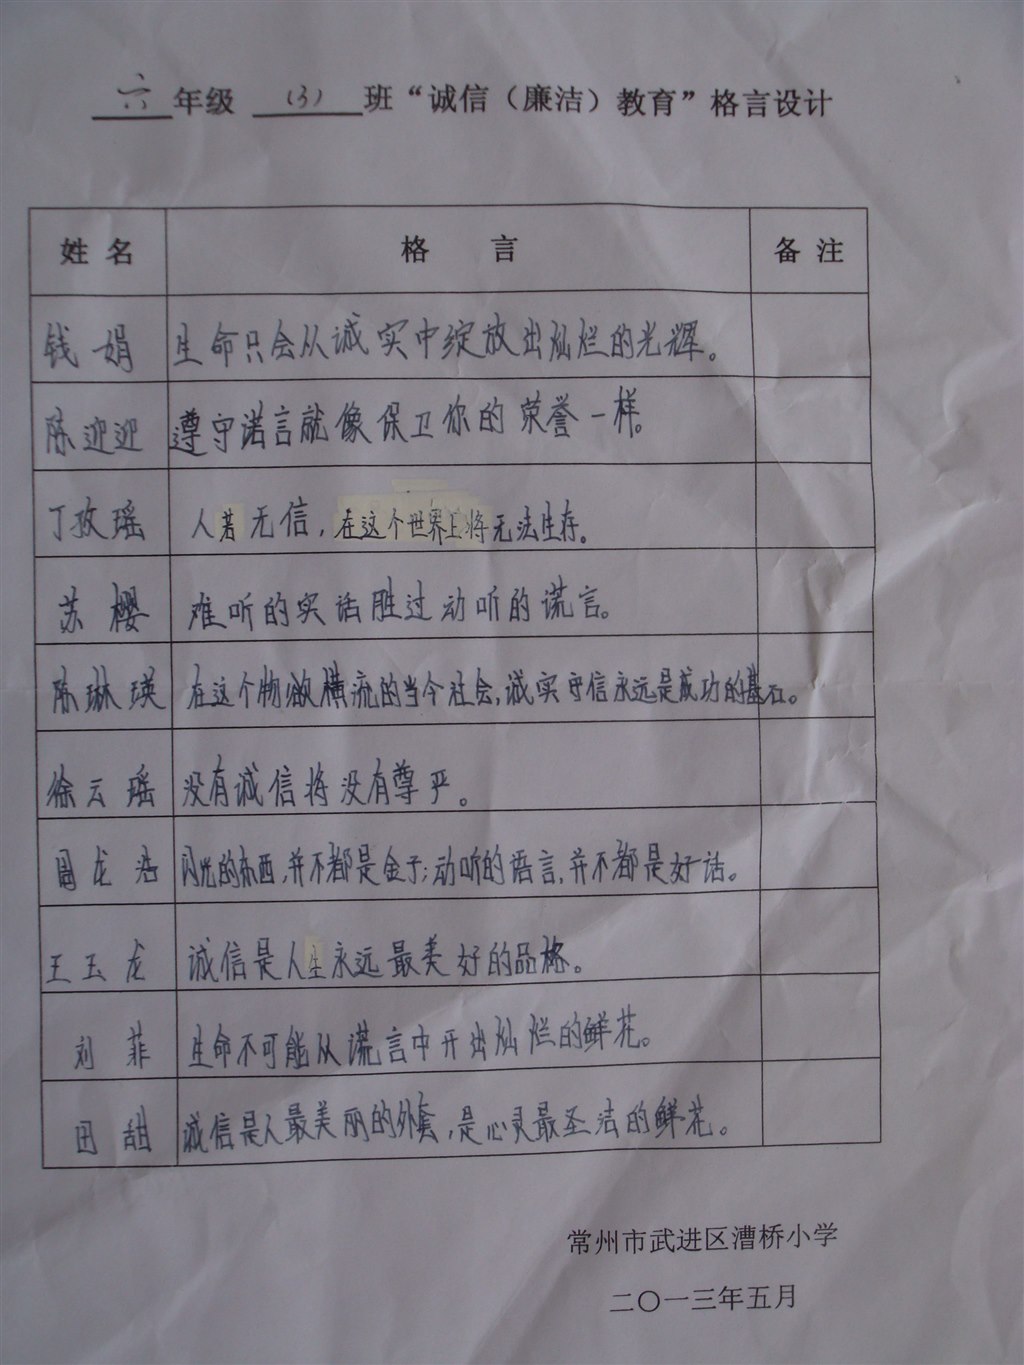 六年级 (3) 班“诚信（廉洁）教育”格言设计
姓名 格言 备注
钱娟 生命只会从诚实中绽放出灿烂的光辉。
陈迎迎 遵守诺言就像保卫你的荣誉一样。
丁孜瑶 人若无信，在这个世界上将无法生存。
苏樱 难听的实话胜过动听的谎言。
陈琳瑛 在这个物欲横流的当今社会，诚实守信永远是成功的基石。
徐云瑶 没有诚信将没有尊严。
周龙浩 闪光的东西，并不都是金子；动听的语言，并不都是好话。
王玉龙 诚信是人生永远最美好的品格。
刘菲 生命不可能从谎言中开出灿烂的鲜花。
田甜 诚信是人最美丽的外套，是心灵最圣洁的鲜花。
常州市武进区漕桥小学
二〇一三年五月